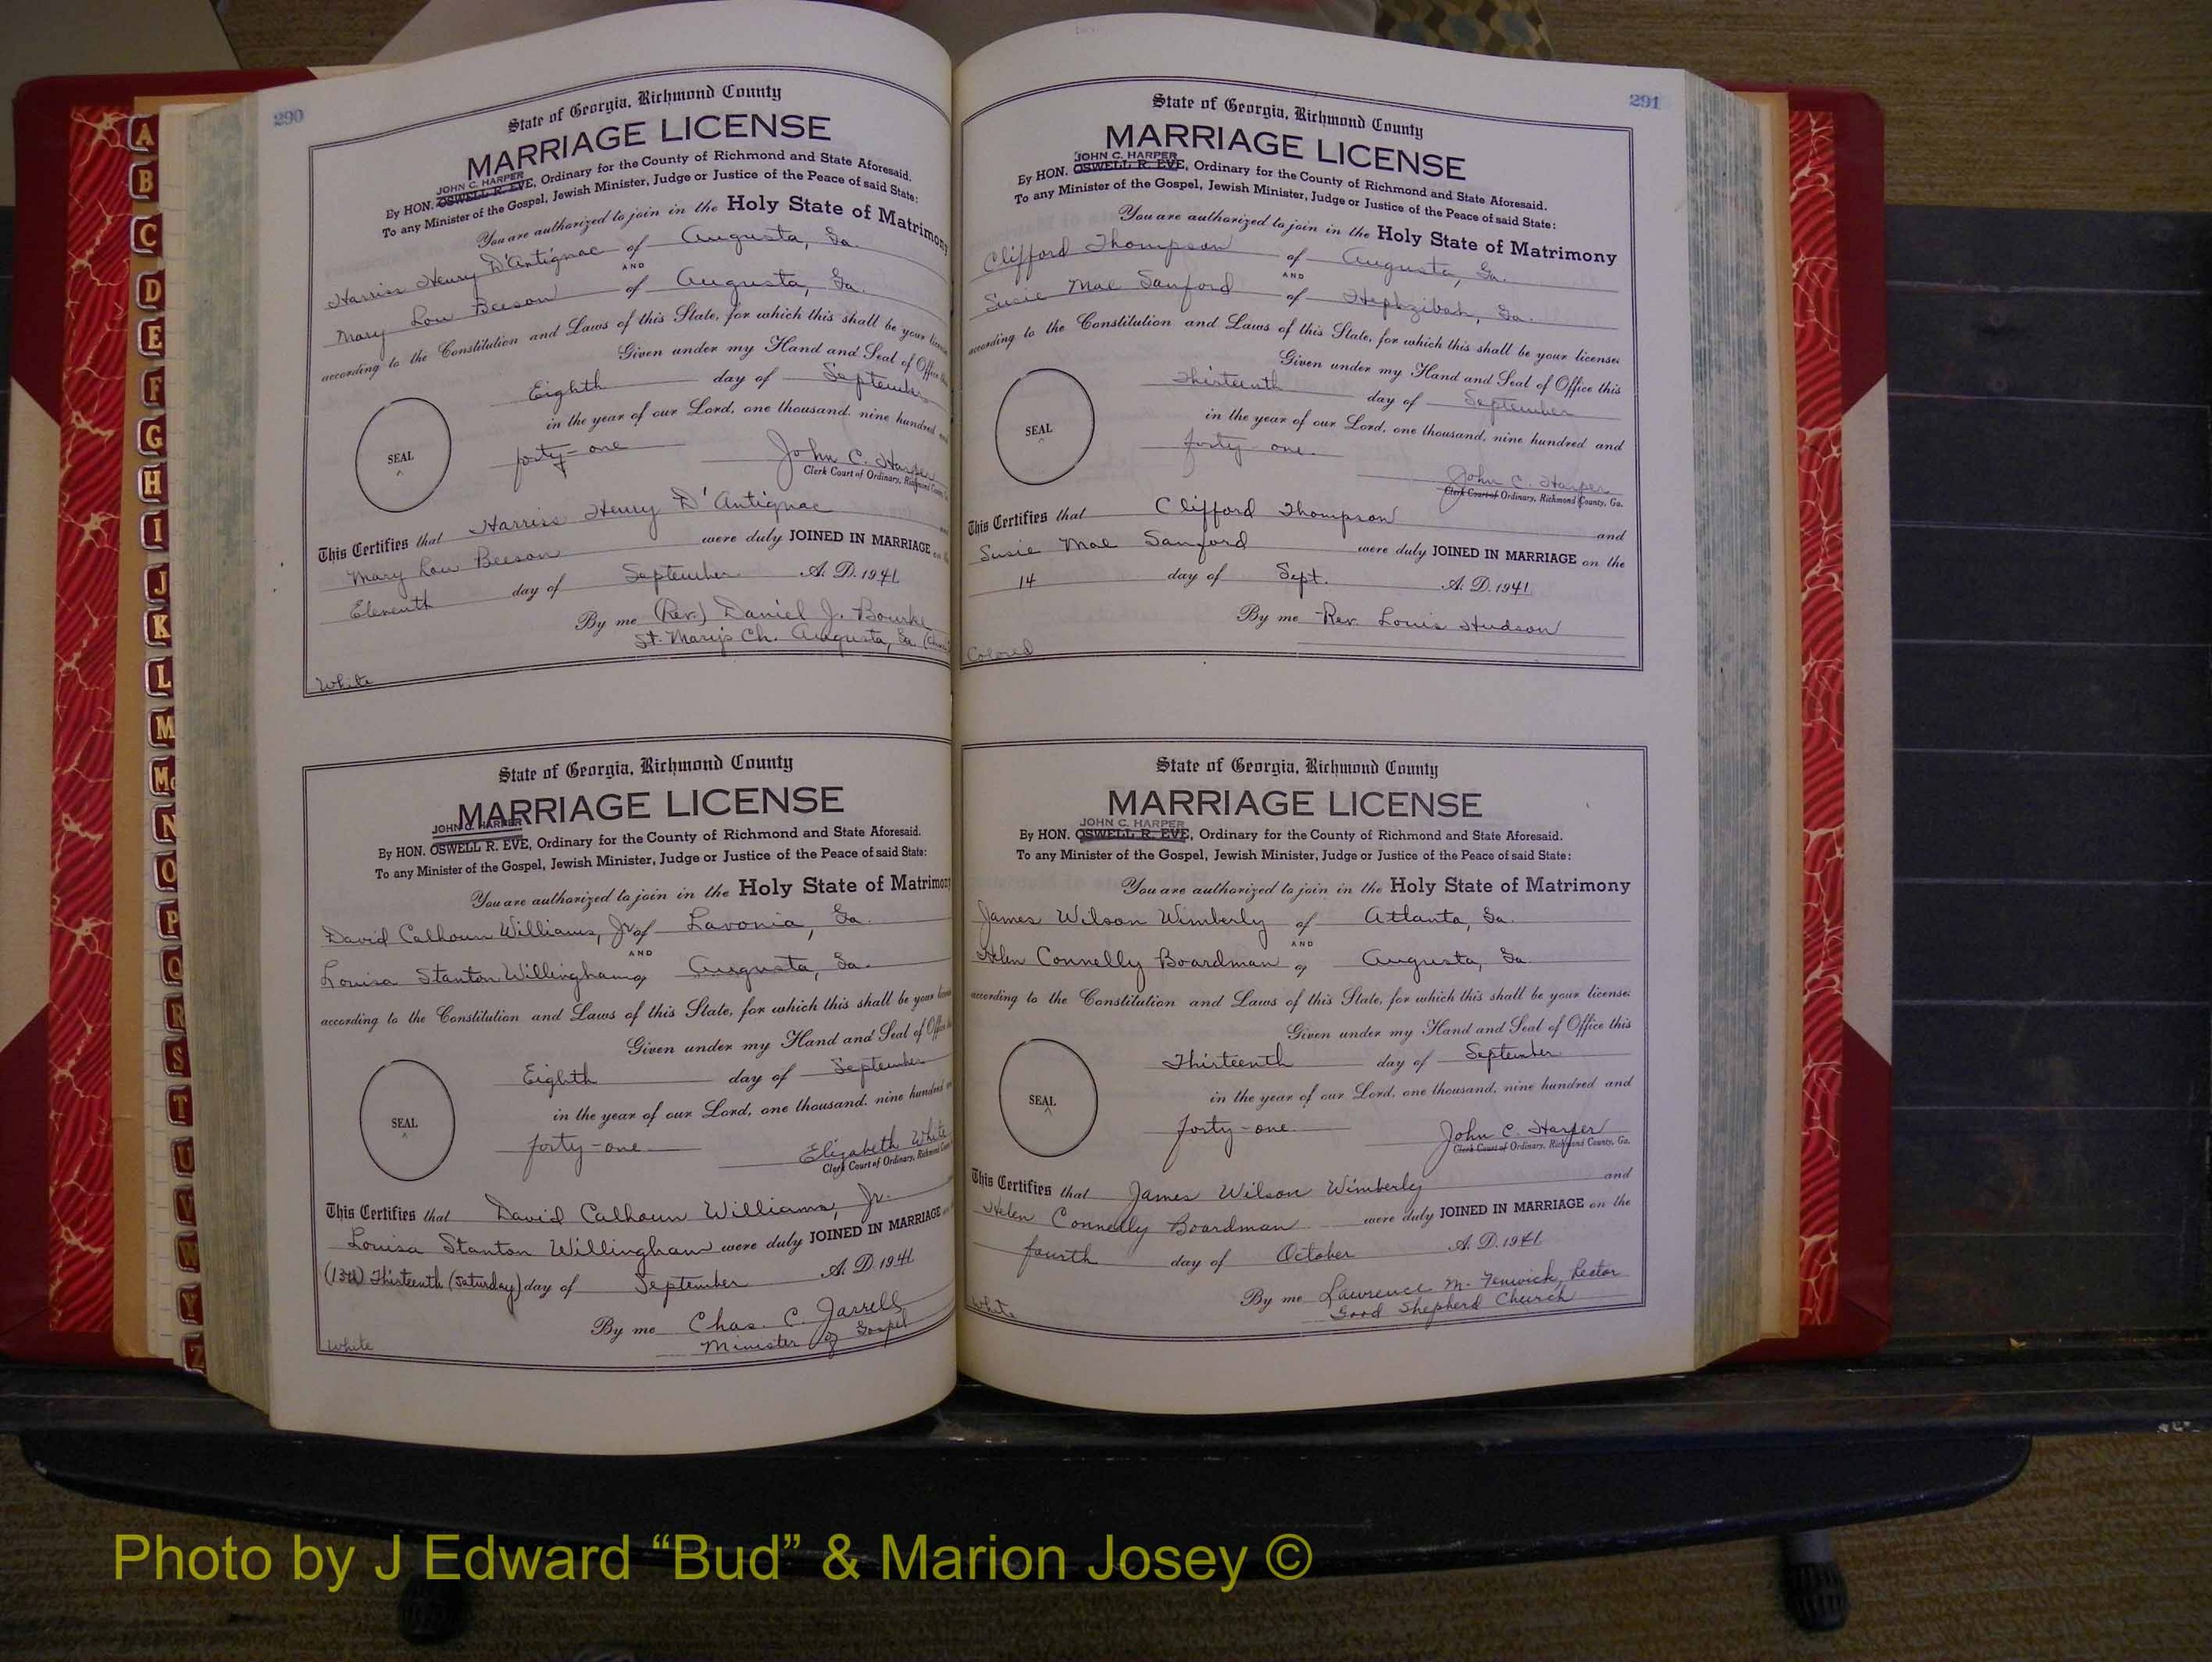 290
State of Georgia, Richmond County
MARRIAGE LICENSE
JOHN C. HARPER
By HON. OSWELL R. EVE, Ordinary for the County of Richmond and State Aforesaid.
To any Minister of the Gospel, Jewish Minister, Judge or Justice of the Peace of said State:
You are authorized to join in the Holy State of Matrimony
Harriss Henry D'Antignac of Augusta, Ga.
AND
Mary Lou Beeson of Augusta, Ga.
according to the Constitution and Laws of this State, for which this shall be your
Given under my Hand and Seal of Office
Eighth day of September
in the year of our Lord, one thousand, nine hundred
forty-one
SEAL
John C. Harper
Clerk Court of Ordinary, Richmond
This Certifies that Harriss Henry D'Antignac
Mary Lou Beeson were duly JOINED IN MARRIAGE
Eleventh day of September A. D. 1941
By me (Rev.) Daniel J. Bourke
St. Mary's Ch. Augusta, Ga.
White
State of Georgia, Richmond County
MARRIAGE LICENSE
JOHN C. HARPER
By HON. OSWELL R. EVE, Ordinary for the County of Richmond and State Aforesaid.
To any Minister of the Gospel, Jewish Minister, Judge or Justice of the Peace of said State:
You are authorized to join in the Holy State of Matrimony
David Calhoun Williams, Jr of Lavonia, Ga.
AND
Louisa Stanton Willingham of Augusta, Ga.
according to the Constitution and Laws of this State, for which this shall be your
Given under my Hand and Seal of Office
Eighth day of September
in the year of our Lord, one thousand, nine hundred
forty-one
SEAL
Elizabeth White
Clerk Court of Ordinary, Richmond
This Certifies that David Calhoun Williams, Jr.
Louisa Stanton Willingham were duly JOINED IN MARRIAGE
(13th) Thirteenth (Saturday) day of September A. D. 1941
By me Chas. C. Jarrell
Minister of Gospel
White
291
State of Georgia, Richmond County
MARRIAGE LICENSE
JOHN C. HARPER
By HON. OSWELL R. EVE, Ordinary for the County of Richmond and State Aforesaid.
To any Minister of the Gospel, Jewish Minister, Judge or Justice of the Peace of said State:
You are authorized to join in the Holy State of Matrimony
Clifford Thompson of Augusta, Ga.
AND
Susie Mae Sanford of Hephzibah, Ga.
according to the Constitution and Laws of this State, for which this shall be your license:
Given under my Hand and Seal of Office this
Thirteenth day of September
in the year of our Lord, one thousand, nine hundred and
forty-one.
SEAL
John C. Harper
Clerk Court of Ordinary, Richmond County, Ga.
This Certifies that Clifford Thompson and
Susie Mae Sanford were duly JOINED IN MARRIAGE on the
14 day of Sept. A. D. 1941
By me Rev. Louis Hudson
Colored
State of Georgia, Richmond County
MARRIAGE LICENSE
JOHN C. HARPER
By HON. OSWELL R. EVE, Ordinary for the County of Richmond and State Aforesaid.
To any Minister of the Gospel, Jewish Minister, Judge or Justice of the Peace of said State:
You are authorized to join in the Holy State of Matrimony
James Wilson Wimberly of Atlanta, Ga.
AND
Helen Connelly Boardman of Augusta, Ga.
according to the Constitution and Laws of this State, for which this shall be your license:
Given under my Hand and Seal of Office this
Thirteenth day of September
in the year of our Lord, one thousand, nine hundred and
forty-one.
SEAL
John C. Harper
Clerk Court of Ordinary, Richmond County, Ga.
This Certifies that James Wilson Wimberly and
Helen Connelly Boardman were duly JOINED IN MARRIAGE on the
fourth day of October A. D. 1941
By me Lawrence M. Fenwick, Rector
Good Shepherd Church
White
A
B
C
D
E
F
G
H
I
J
K
L
M
Mc
N
O
P
Q
R
S
T
U
V
W
Y
Z
Photo by J Edward “Bud” & Marion Josey ©